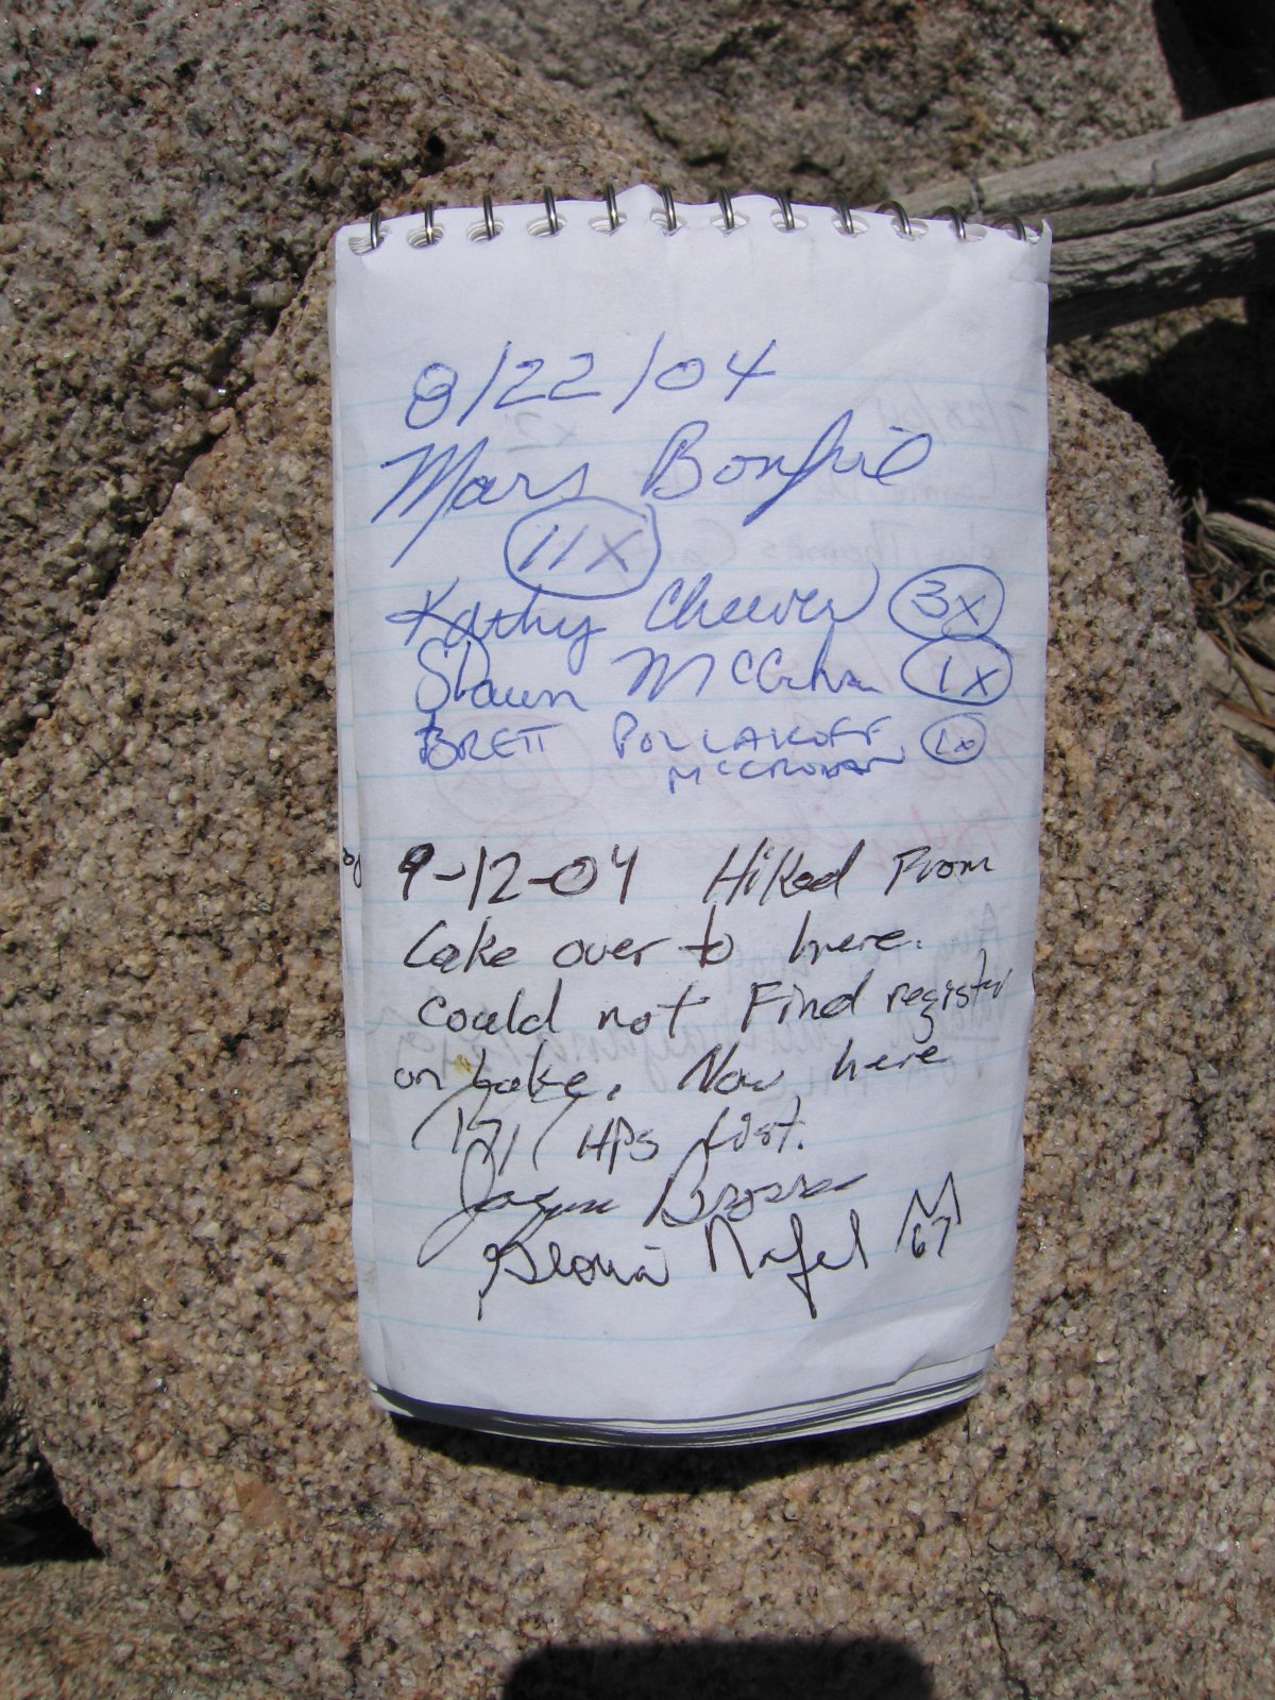 8/22/04
Mars Bonfire
11X
Kathy Cheever 3X
Shaun 1X
BRETT POLLAKOFF 1X
9-12-04 Hiked From
Lake over to here.
could not Find register
on Lake. Now here
HPS List.
67